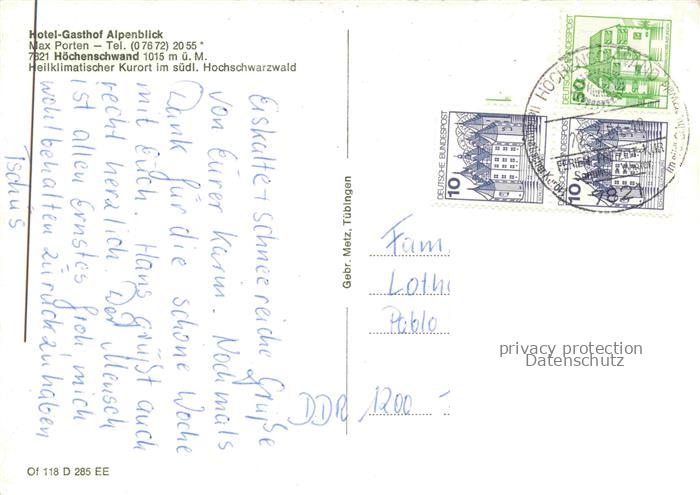 Hotel-Gasthof Alpenblick
Max Porten – Tel. (0 76 72) 20 55*
7821 Höchenschwand 1015 m ü. M.
Heilklimatischer Kurort im südl. Hochschwarzwald
Eiskalte + schneereiche Grüße
von Eurer Karin. Nochmals
Dank für die schöne Woche
mit Euch. Hans grüßt auch
recht herzlich. Der Mensch
ist allen Ernstes froh mich
wohlbehalten zurückzuhaben
Tschüs
Gebr. Metz, Tübingen
DEUTSCHE BUNDESPOST
50
DEUTSCHE BUNDESPOST
10
10
HÖCHENSCHWAND
7821
Fam.
Loth
Pablo
DDR 1200
privacy protection
Datenschutz
Of 118 D 285 EE